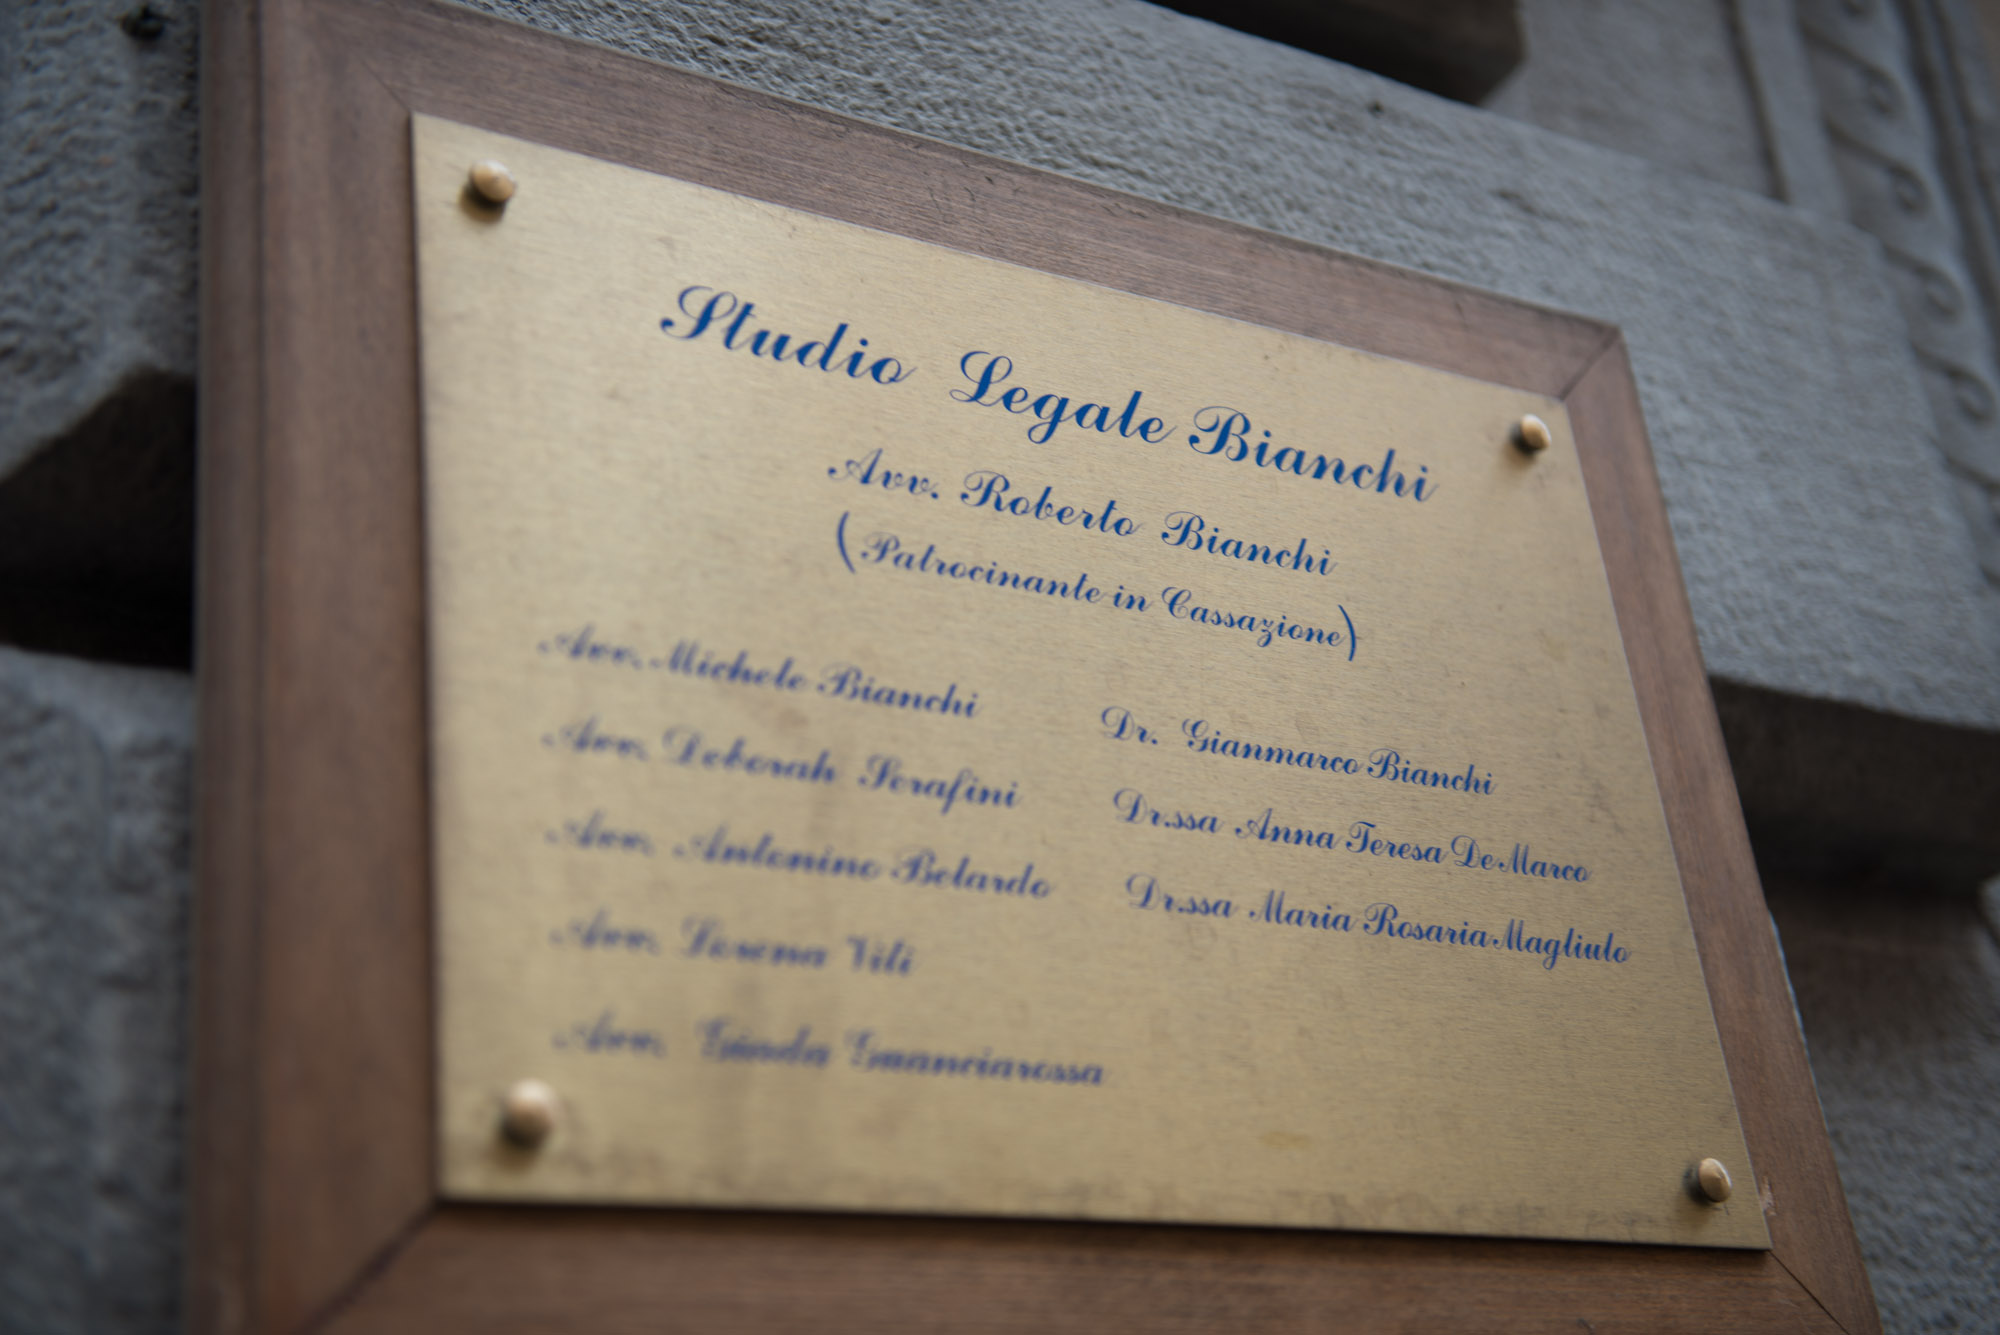 Studio Legale Bianchi
Avv. Roberto Bianchi
(Patrocinante in Cassazione)
Avv. Michele Bianchi
Avv. Deborah Serafini
Avv. Antonino Belardo
Avv. Lorena Vili
Avv. Guanciarossa
Dr. Gianmarco Bianchi
Dr.ssa Anna Teresa De Marco
Dr.ssa Maria Rosaria Magliulo